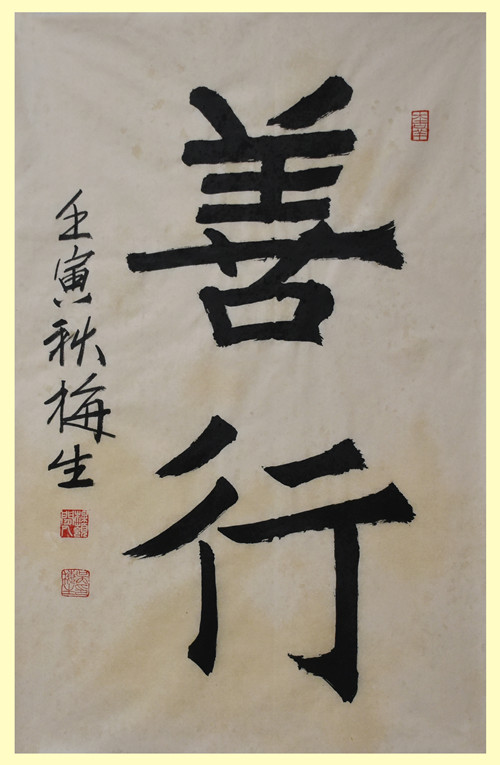 善行
壬寅秋梅生